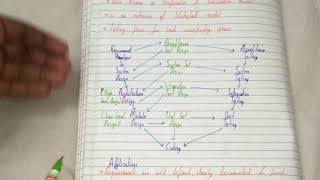 Also Known as Verification & Validation Model
is an extension of Waterfall model
Testing phase for each corresponding phase
Requirement Analysis
Acceptance Test Design
Acceptance Testing
System Design
System Test Design
System Testing
(High level design) Architecture Design
Integration Test Design
Integration Testing
(Low level Design) Module Design
Unit Test Design
Unit Testing
Coding
Application:
Requirement are well defined, clearly documented &